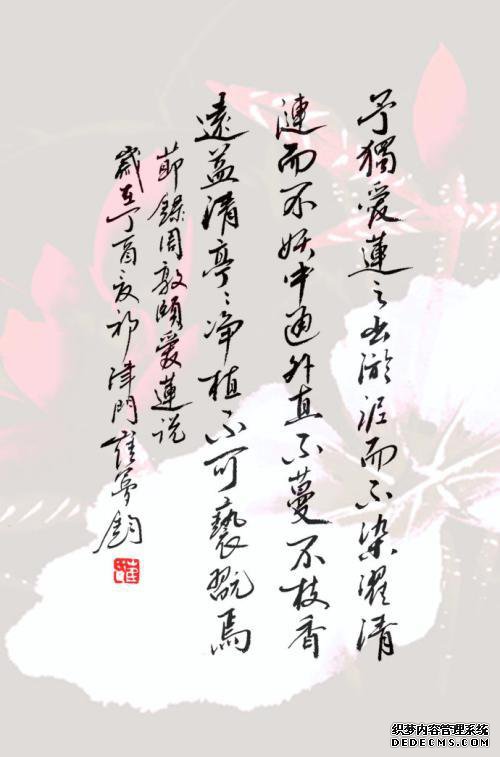 予獨愛蓮之出淤泥而不染濯清
漣而不妖中通外直不蔓不枝香
遠益清亭〻净植不可褻翫焉
節錄周敦頤愛蓮说
歲在丁酉夏初津門崔夢
织梦内容管理系统
DEDECMS.COM